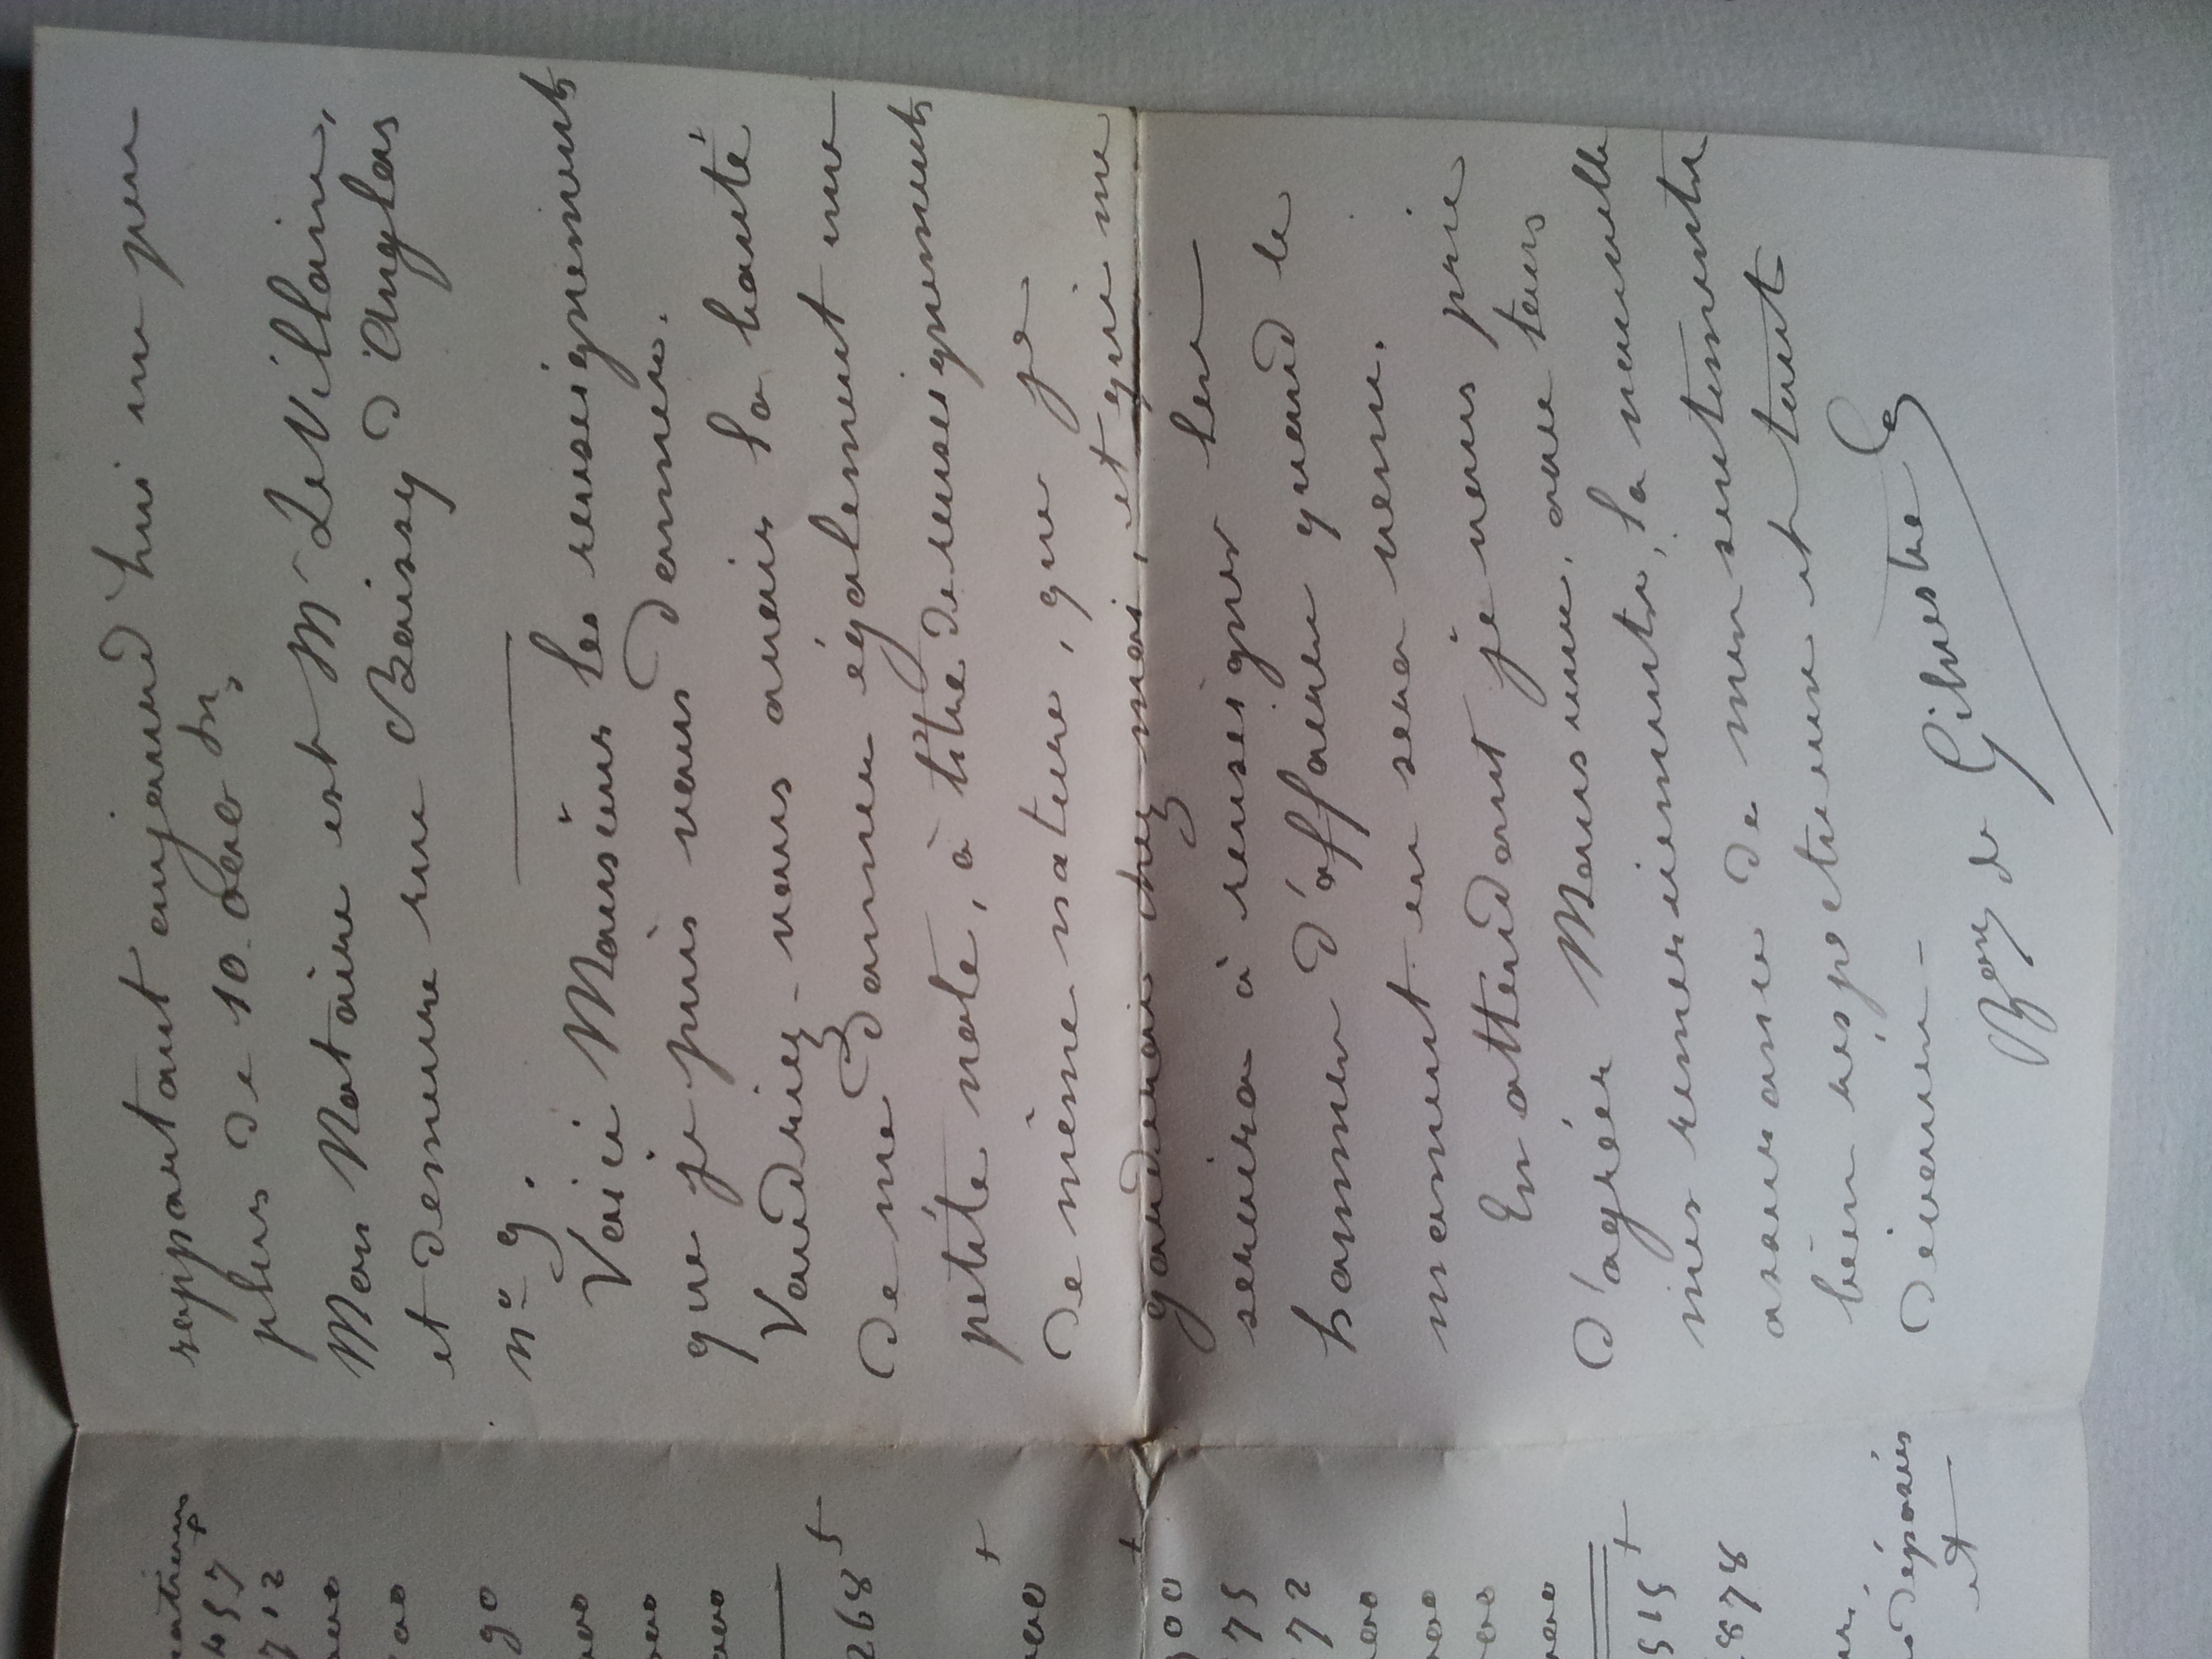 rapportant aujourd'hui un peu
plus de 10.000 frs
Mon Notaire est Mr Le Villain,
et demeure rue Boissy d'Anglas
n° 9.
Voici Monsieur les renseignements
que je puis vous donner.
Voudriez-vous avoir la bonté
de me donner également une
petite note, à titre de renseignements
de même nature, que je
garderai chez moi, et qui me
servira à renseigner les
hommes d'affaires quand le
moment en sera venu.
En attendant je vous prie
d'agréer Monsieur, avec tous
mes remerciements, la nouvelle
assurance de mes sentiments
bien respectueux et tout
dévoués -
Bon de Gilvestre
457
7,12
000
00
90
000
000
000
268 5
+
000
+
00
75
72
000
000
000
000
515 +
878
déposés
et